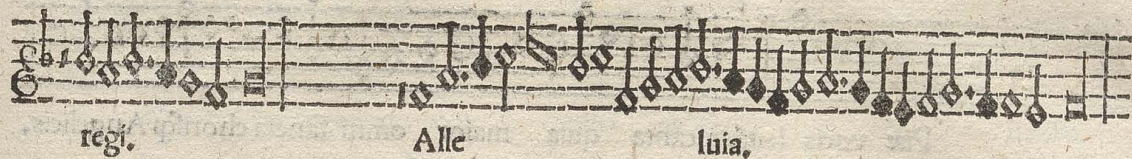 regi. Alle luia.